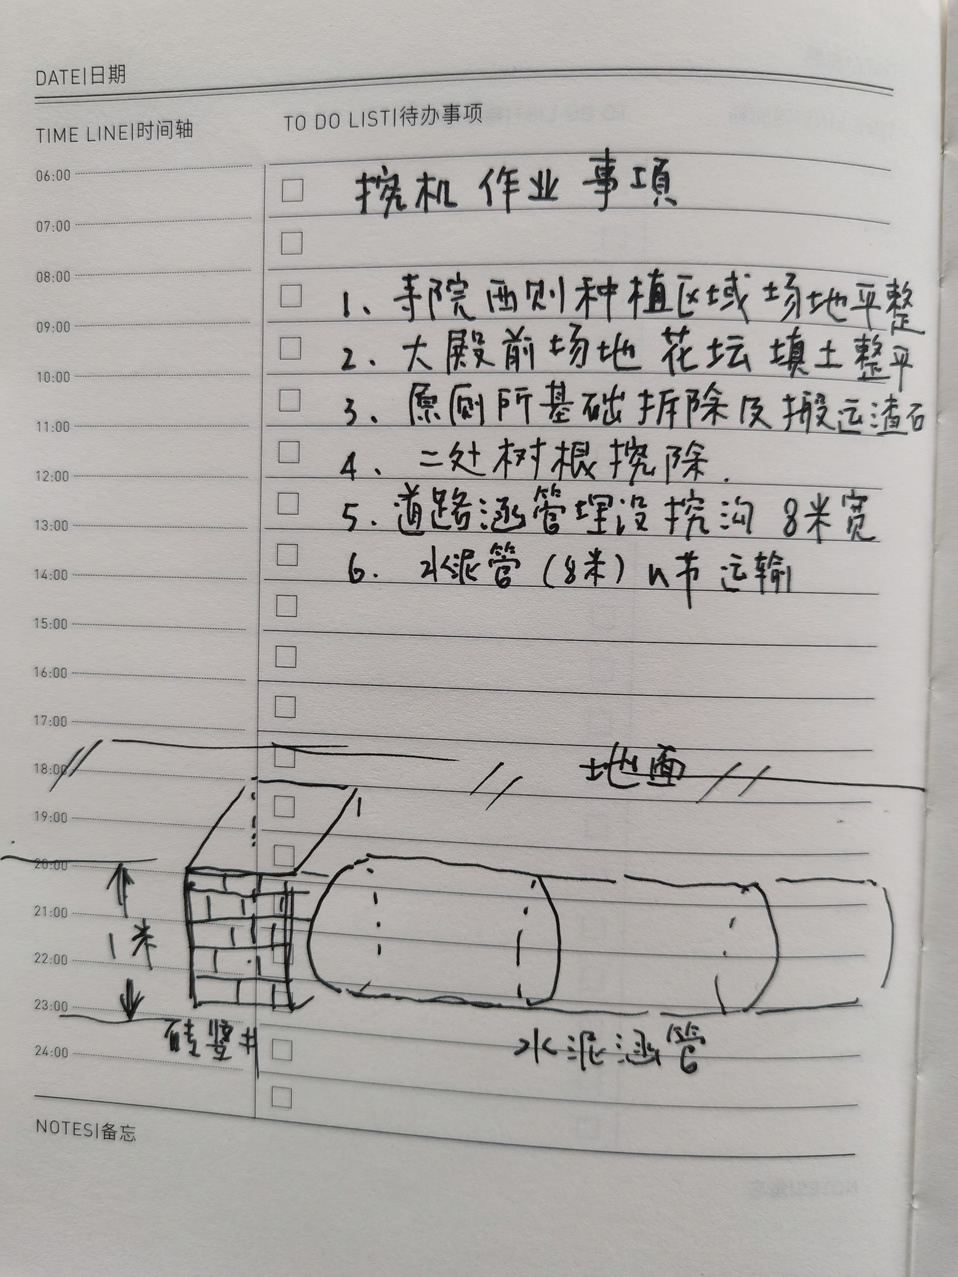 DATE|日期
TIME LINE|时间轴
TO DO LIST|待办事项
06:00
07:00
08:00
09:00
10:00
11:00
12:00
13:00
14:00
15:00
16:00
17:00
18:00
19:00
20:00
21:00
22:00
23:00
24:00
挖机作业事項
1、寺院西则种植区域场地平整
2、大殿前场地花坛填土整平
3、原厕所基础拆除及搬运渣石
4、二处树根挖除.
5.道路涵管埋设挖沟8米宽
6.水泥管(8米)n节运输
地面
1米
砖竖井
水泥涵管
NOTES|备忘